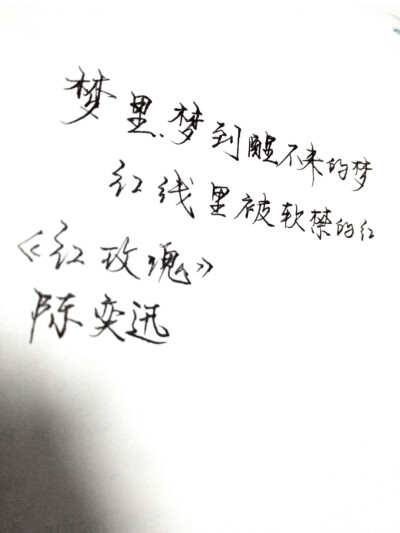 梦里梦到醒不来的梦
红线里被软禁的红
《红玫瑰》
陈奕迅